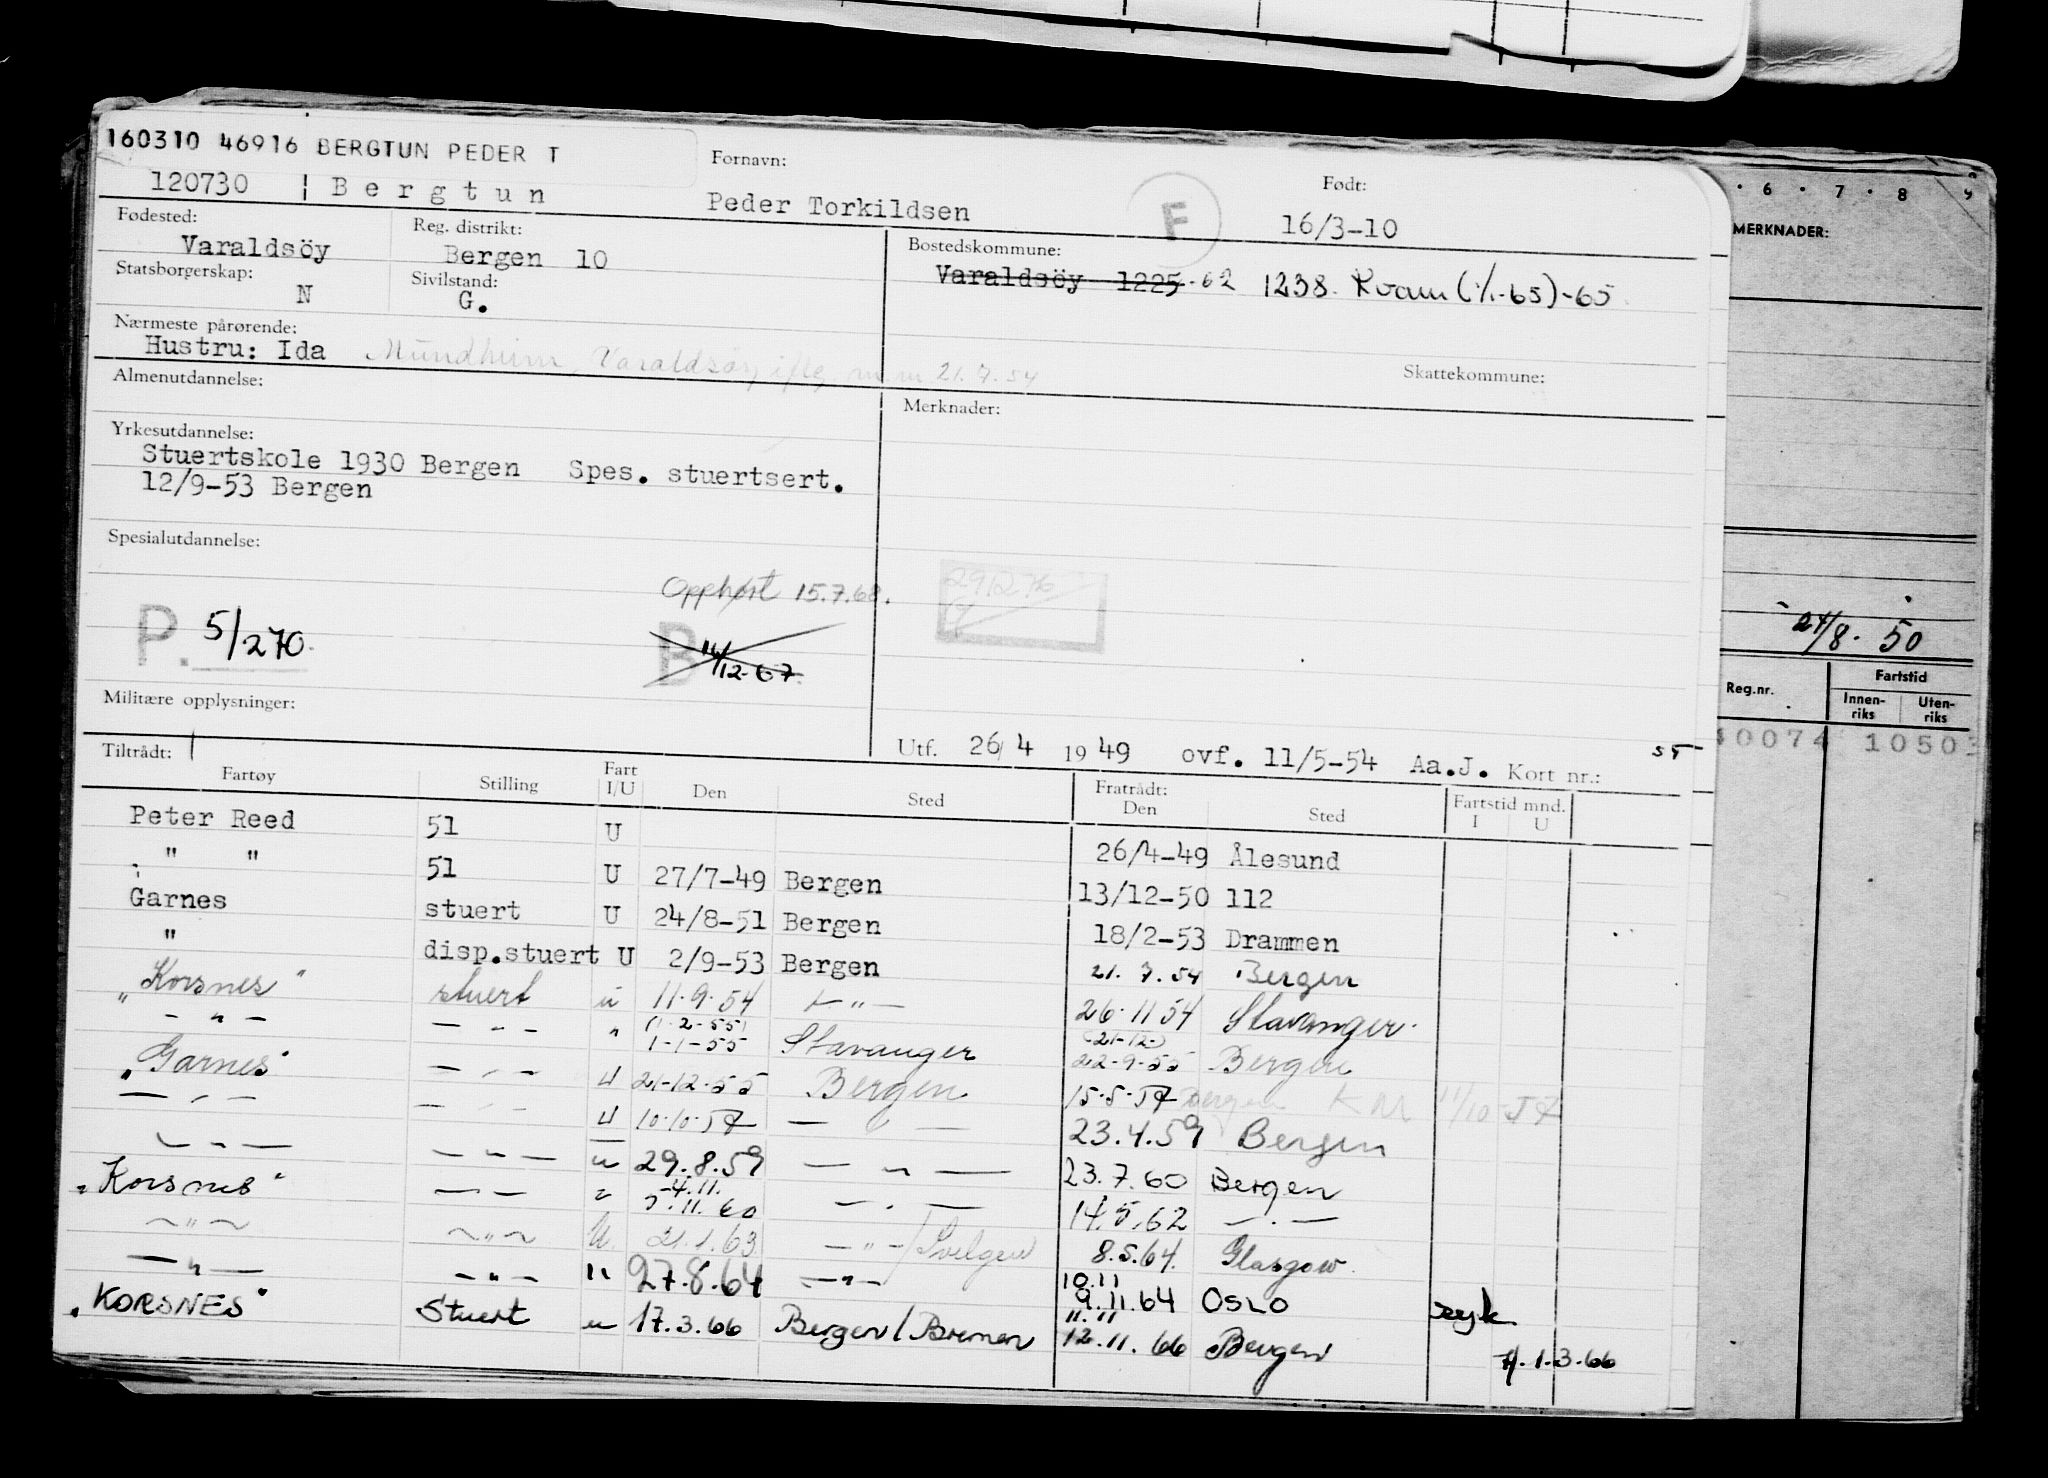 160310 46916 BERGTUN PEDER T
120730 Bergtun
Fornavn:
Peder Torkildsen
F
Født:
16/3-10
Fødested:
Varaldsöy
Reg. distrikt:
Bergen 10
Bostedskommune:
Varaldsöy 1225-62 1238 Kvam (1/1-65)-65
Statsborgerskap:
N
Sivilstand:
G.
Nærmeste pårørende:
Hustru: Ida Mundheim, Varaldsöy iflg m.m 21.7.54
Skattekommune:
Almenutdannelse:
Merknader:
Yrkesutdannelse:
Stuertskole 1930 Bergen Spes. stuertsert.
12/9-53 Bergen
Spesialutdannelse:
Opphørt 15.7.68.
291276
P. 5/270.
B 14/12-67
Militære opplysninger:
Utf. 26/4 1949 ovf. 11/5-54 Aa.J. Kort nr.: 55
Tiltrådt:
Fartøy Stilling Fart I/U Den Sted Fratrådt: Den Sted Fartstid mnd. I U
Peter Reed 51 U 26/4-49 Ålesund
" " 51 U 27/7-49 Bergen 13/12-50 112
Garnes stuert U 24/8-51 Bergen 18/2-53 Drammen
" disp.stuert U 2/9-53 Bergen 21.7.54 Bergen
"Korsnes" stuert u 11.9.54 -"- 26.11 54 Stavanger.
-"- -"- " (1-2-55) 1-1-55 Stavanger (21-12-) 22-9-55 Bergen
"Garnes" -"- U 21-12-55 Bergen 15-5-57 Bergen KM 11/10-57
-"- -"- U 10-10-57 -"- 23.4.59 Bergen
-"- -"- u 29.8.59 -"- 23.7.60 Bergen
"Korsnes" -"- " -4.11. 5.11.60 -"- 14.5.62 -"-
-"- -"- U. 21.1.63 -"-/Svelgen 8.5.64. Glasgow
-"- -"- " 27.8.64 -"- 10.11 9.11.64 OSLO syk
"KORSNES" Stuert u 17.3.66 Bergen/Bremen 11.11 12.11.66 Bergen 1.3.66
6 7 8 9
MERKNADER:
24/8. 50
Reg.nr.
Fartstid
Innen-riks Uten-riks
40074 10503